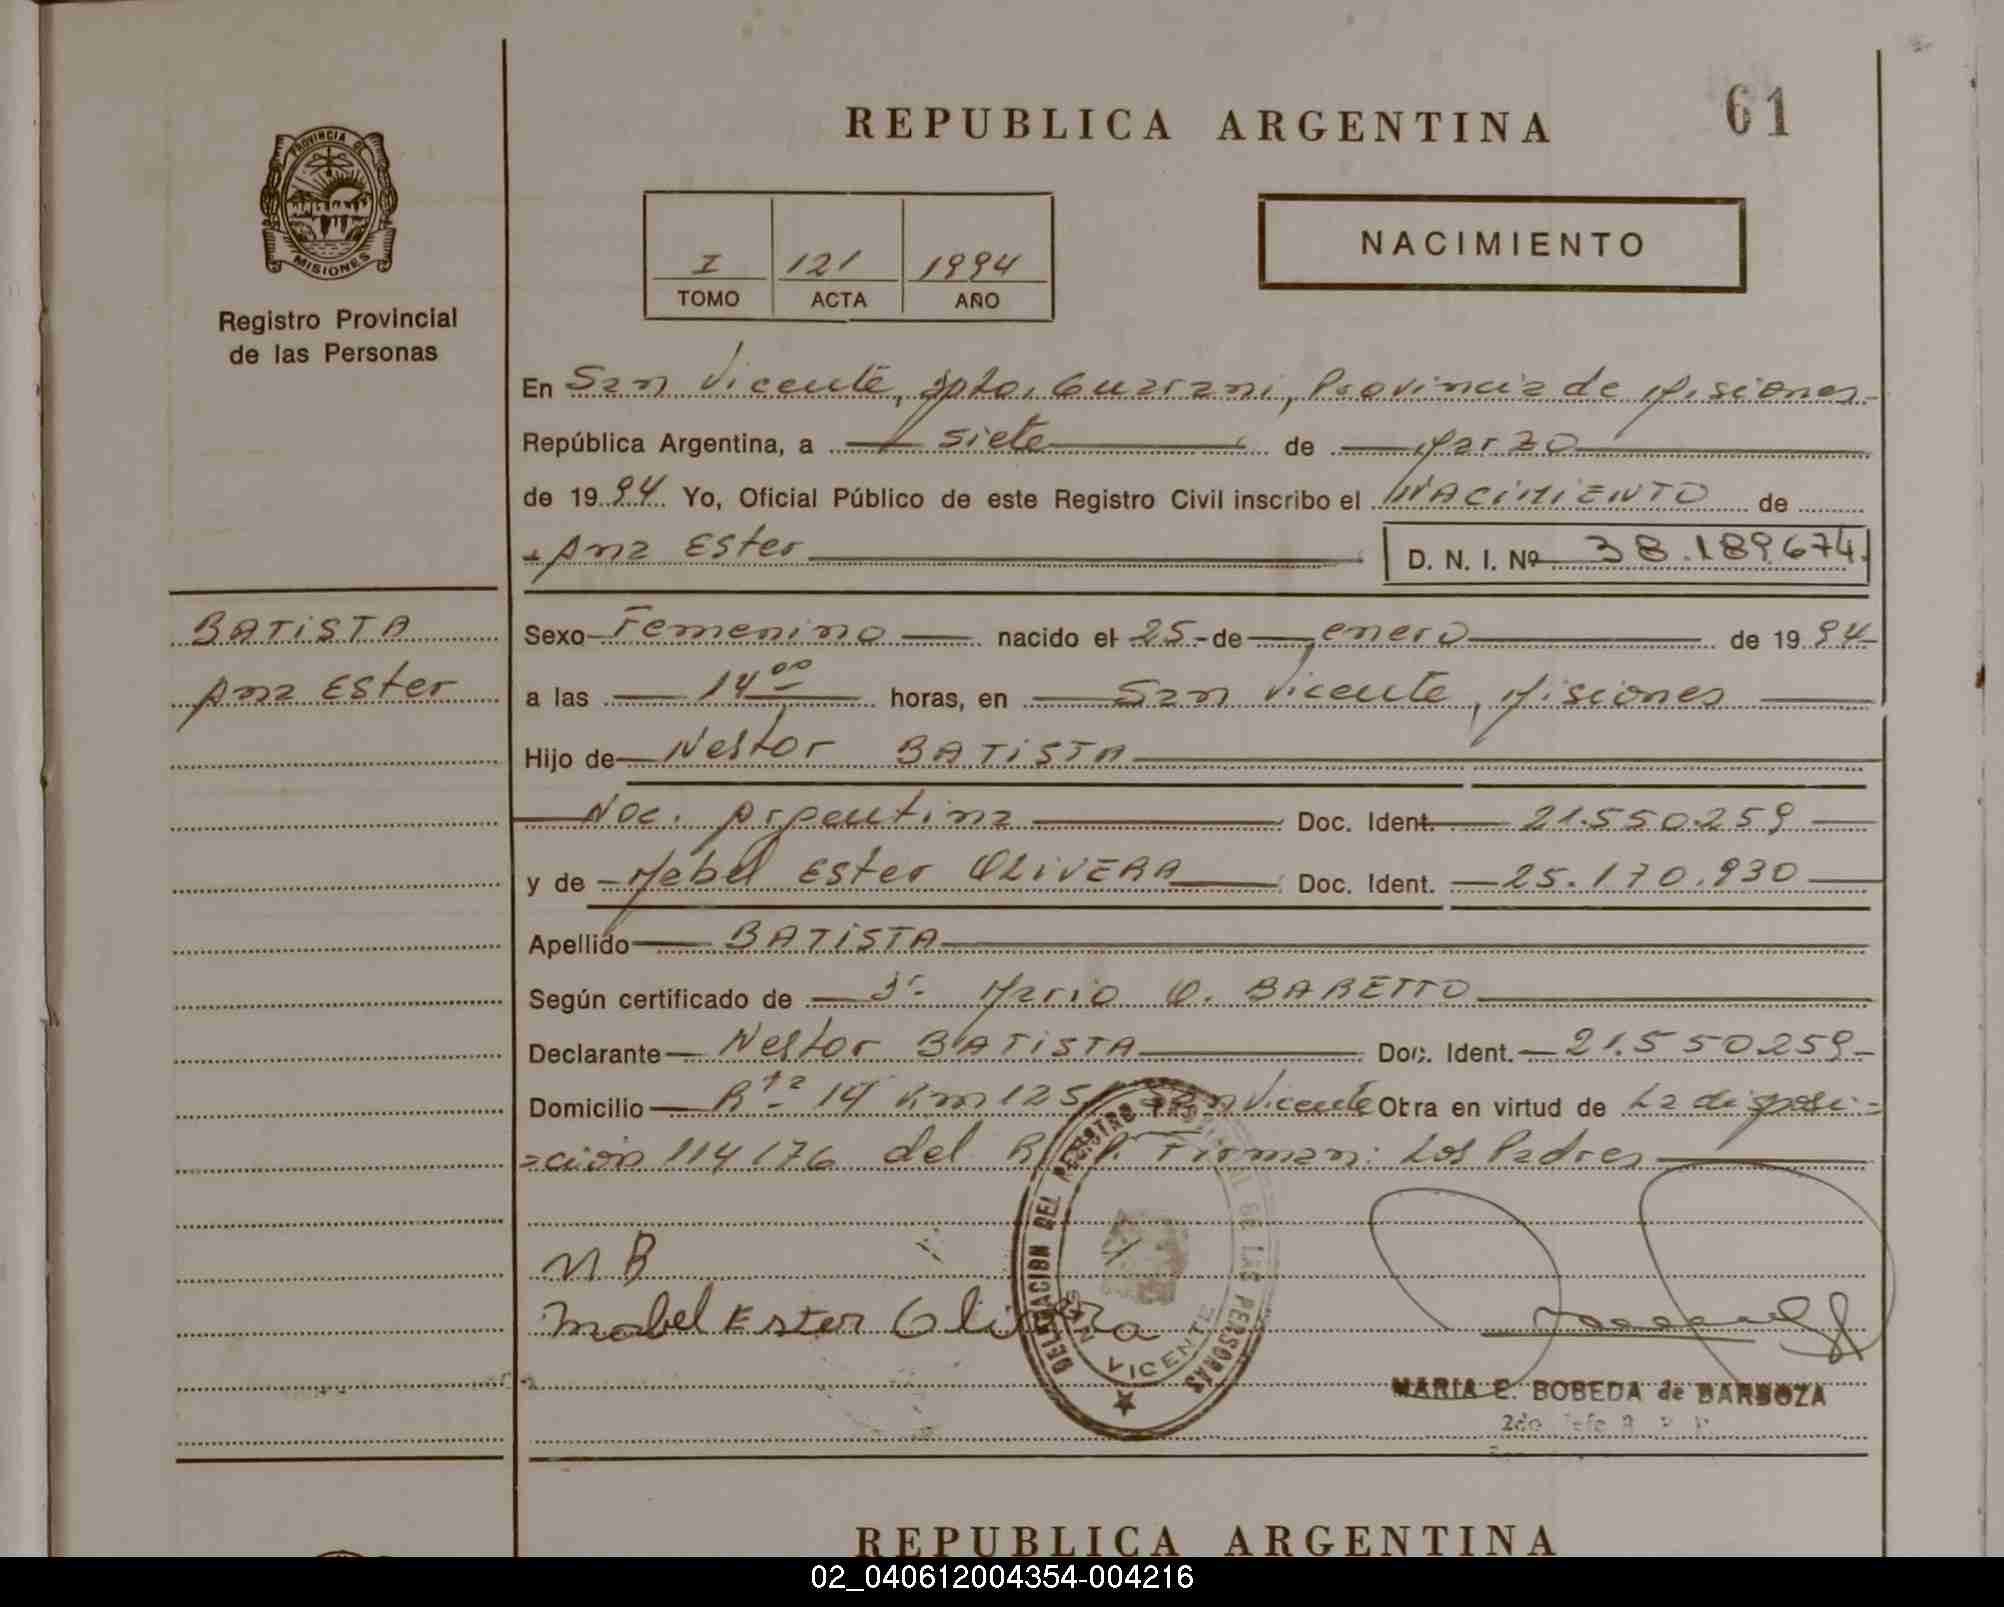 REPUBLICA ARGENTINA
61
PROVINCIA DE
MISIONES
Registro Provincial
de las Personas
I 121 1994
TOMO ACTA AÑO
NACIMIENTO
En San Vicente, Dpto. Guarani, Provincia de Misiones
República Argentina, a siete de Marzo
de 1994 Yo, Oficial Público de este Registro Civil inscribo el NACIMIENTO de
Ana Ester
D. N. I. Nº 38.189.674
BATISTA
Ana Ester
Sexo Femenino nacido el 25 de enero de 1994
a las 14 00 horas, en San Vicente, Misiones
Hijo de Nestor BATISTA
Nac. Argentina Doc. Ident. 21.550.259
y de Mabel Ester OLIVERA Doc. Ident. 25.170.930
Apellido BATISTA
Según certificado de Dr. Mario O. BARETTO
Declarante Nestor BATISTA Doc. Ident. 21.550259
Domicilio Rta 14 Km 125 San Vicente Obra en virtud de La disposi-
=ción 114/76 del Firman: Los Padres
N B
Mabel Ester Olivera
DELEGACION DEL REGISTRO PROVINCIAL DE LAS PERSONAS
SAN VICENTE
MARIA E. BOBEDA de BARBOZA
2do Jefe R. P. P.
REPUBLICA ARGENTINA
02_040612004354-004216